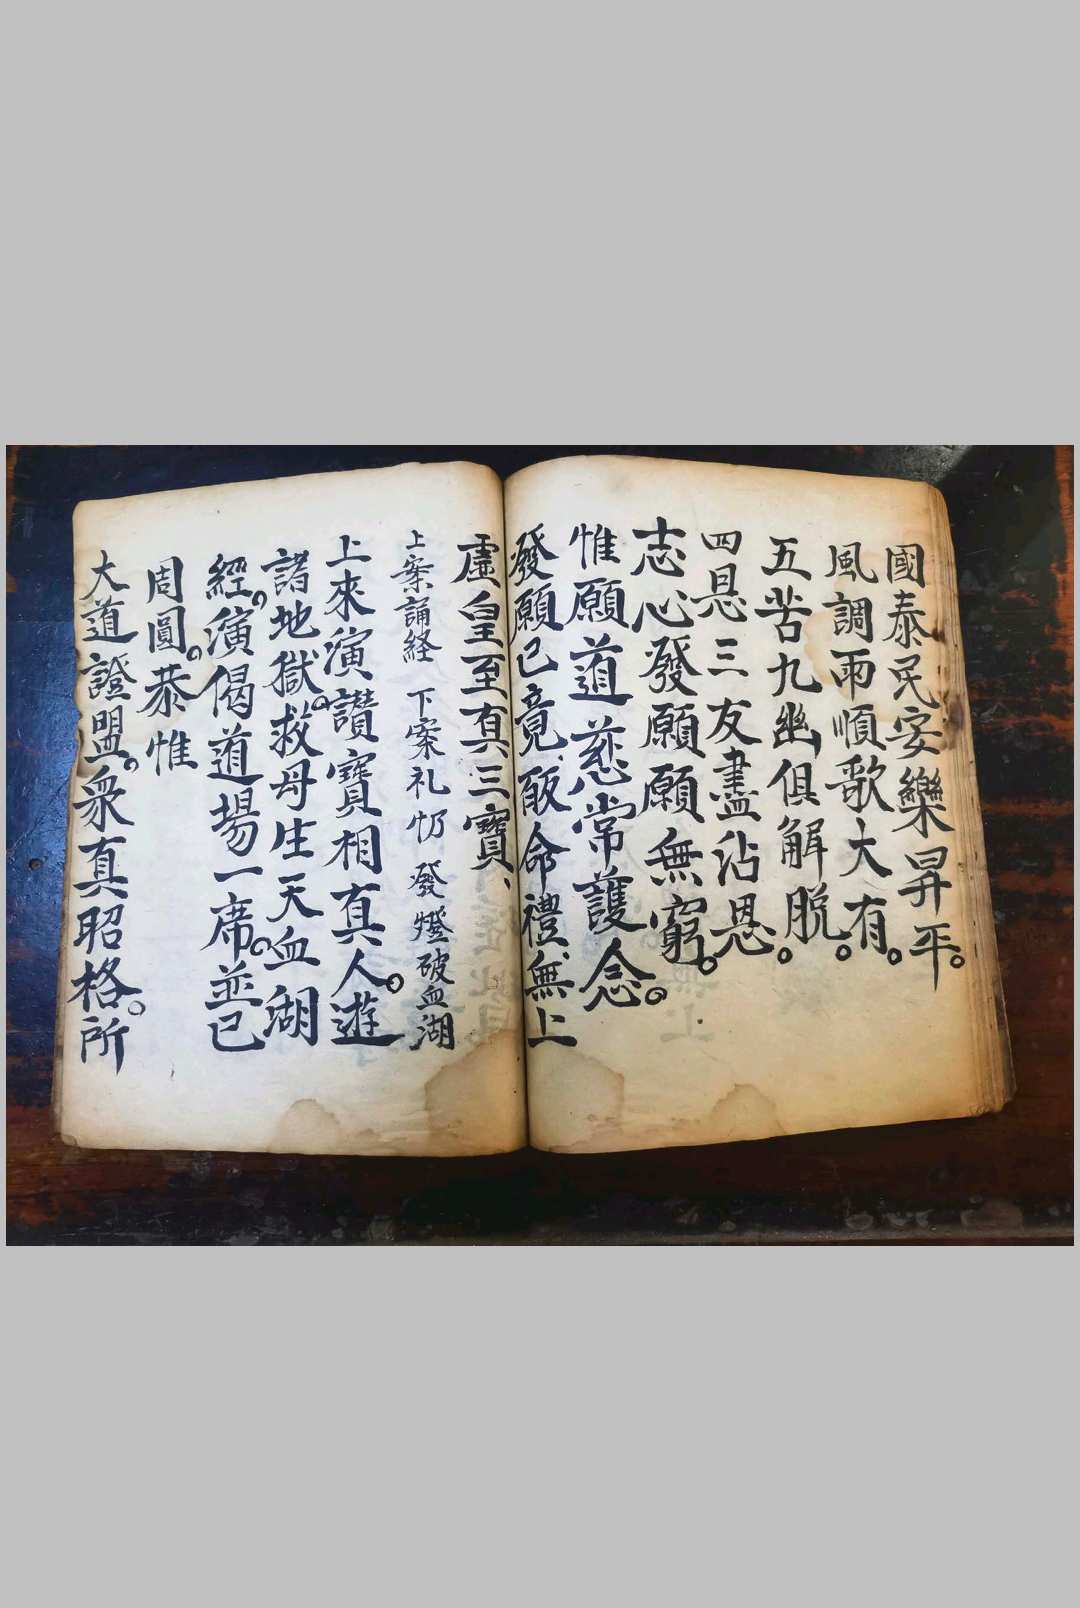 國泰民安樂昇平。
風調雨順歌大有。
五苦九幽俱解脫。
四恩三友盡沾恩。
志心發願願無窮。
惟願道慈常護念。
發願已竟皈命禮無上
虛皇至真三寶、
上案誦経 下案礼忉 發燈破血湖
上來演讚寶相真人。遊
諸地獄。救母生天血湖
經。演偈道場一席。並已
周圓。恭惟
大道證盟。衆真昭格。所